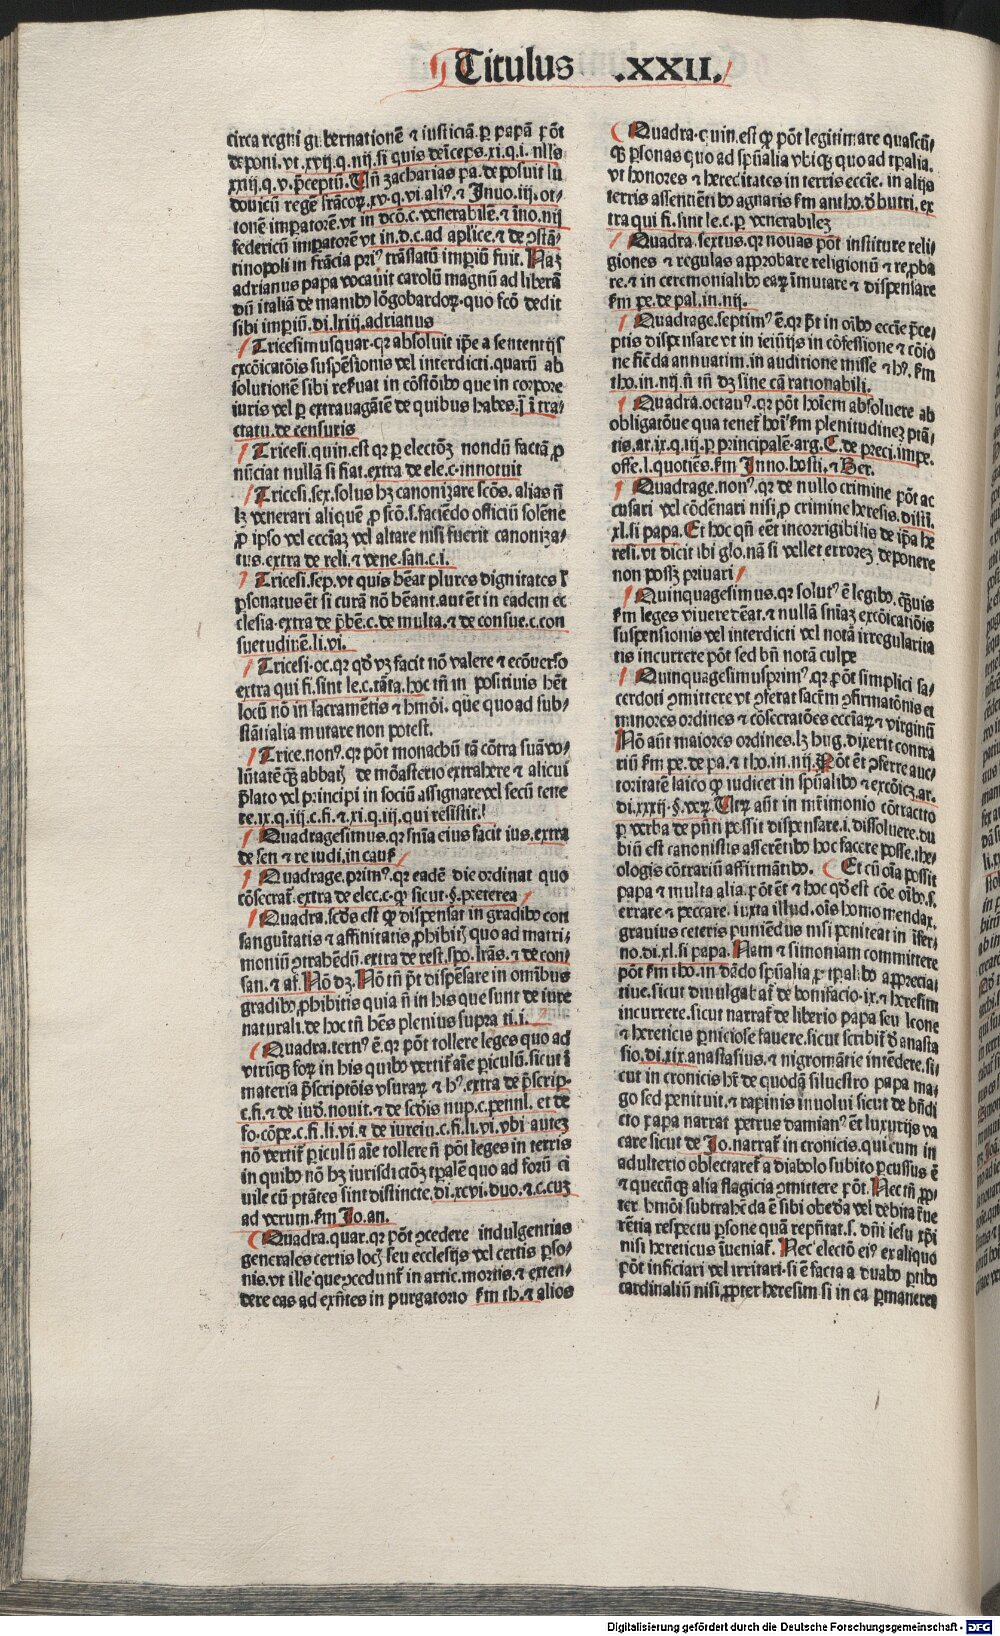 Titulus .XXII.
circa regni gubernationē ⁊ iusticiā. ꝑ papā p̄ōt
deponi. vt. xvij. q. nij. si quis deīceps. xi. q. i. nlls
xxiij. q. v. p̄ceptū. Uñ zacharias pa. deposuit lu
douicū regē frācoꝝ. xv. q. vi. aliꝰ. ⁊ Inno. iij. ot⸗
tonē impatorē. vt in dcō. c. venerabilē. ⁊ īno. nij
federicū impatorē vt in. d. c. ad aplice. ⁊ de ꝯstā⸗
tinopoli in frācia priꝰ trāslatū imperiū fuit. Naʒ
adrianus papa vocauit carolū magnū ad liberā
dū italiā de manibꝰ lōgobardoꝝ. quo fcō dedit
sibi imperiū. di. lxiij. adrianus
Tricesimusquar. qꝛ absoluit ip̄e a sententijs
excōicatōis suspēsionis vel interdicti. quarū ab
solutionē sibi reẜuat in cōstōibꝰ que in corpore
iuris vel ꝑ extrauagātē de quibus habes. j̄ ī tra⸗
ctatu. de censuris
Tricesi. quin. est qꝛ ꝑ electōʒ nondū factā ꝓ
nūciat nullā si fiat. extra de ele. c. innotuit
Tricesi. sex. solus hʒ canonizare scōs. alias ñ
lʒ venerari aliquē ꝓ scō. s. faciēdo officiū solēne
ꝓ ipso vel eccīaʒ vel altare nisi fuerit canoniza⸗
tus. extra de reli. ⁊ vene. san. c. i.
Tricesi. sep. vt quis hēat plures dignitates ⁊
ꝑsonatus ēt si curā nō hēant. aut ēt in eadem ec
clesia. extra de p̄bē. c. de multa. ⁊ de consue. c. con
suetudinē. li. vi.
Tricesi. oc. qꝛ qō vʒ facit nō valere ⁊ ecōuerso
extra qui fi. sint le. c. tāta. hoc tñ in positiuis hēt
locū nō in sacramētis ⁊ hmōi. q̄ue quo ad sub⸗
stātialia mutare non potest.
Trice. nonꝰ. qꝛ pōt monachū tā cōtra suā vo⸗
lūtatē qʒ abbatʒ de mōasterio extrahere ⁊ alicui
p̄lato vel principi in sociū assignare vel secū tene
re. ix. q. iij. c. fi. ⁊ xi. q. iij. qui resistit.
Quadragesimus. qꝛ sn̄ia eius facit ius. extra
de sen ⁊ re iudi. in causʒ
Quadrage. primꝰ. qꝛ eadē die ordinat quo
cōsecrat̄. extra de elec. c. qꝙ sicut. §. preterea
Quadra. scds est qꝙ dispensat in gradibꝰ con
sanguītatis ⁊ affinitatis ꝓhibitʒ quo ad matri⸗
moniū ꝯtrahēdū. extra de rest. spo. lr̄as. ⁊ de con⸗
san. ⁊ af. Nō dʒ. Nō tñ p̄t dispēsare in omibus
gradibꝰ ꝓhibitis quia ñ in his que sunt de iure
naturali. de hoc tñ hēs plenius supra ti. i.
Quadra. tertiꝰ ē. qꝛ pōt tollere leges quo ad
vtrūqʒ forʒ in his quibꝰ vertit̄ aīe ꝑiculū. sicut ī
materia p̄scriptōis vsuraꝝ ⁊ hꝰ. extra de p̄scrip.
c. fi. ⁊ de iud. nouit. ⁊ de scdis nup. c. pennl. et de
fo. cōpe. c. fi. li. vi. ⁊ de iureiu. c. fi. li. vi. vbi auteʒ
nō vertit̄ ꝑiculū aīe tollere ñ pōt leges in terris
in quibꝰ nō hʒ iurisdictōʒ tꝑalē quo ad forū ci
uile cū ptātes sint distincte. di. xcvi. duo. ⁊ c. cuʒ
ad verum. ẜm Jo. an.
Quadra. quar. qꝛ pōt ꝯcedere indulgentias
generales certis locʒ seu ecclesijs vel certis ꝑso⸗
nis. vt ille que ꝯcedunt̄ in artic. mortis. ⁊ exten⸗
dere eas ad exñtes in purgatorio ẜm th. ⁊ alios
Quadra. quin. est qꝙ pōt legitimare quascū⸗
qʒ ꝑsonas quo ad spūalia vbiqʒ quo ad tꝑalia.
vt honores ⁊ hereditates in terris eccīe. in alijs
terris assentiētibꝰ agnatis ẜm antho. d butri. ex
tra qui fi. sint le. c. ꝑ venerabileʒ
Quadra. sextus. qꝛ nouas pōt instituere reli
giones ⁊ regulas approbare religionū ⁊ reꝓba
re. ⁊ in ceremonialibꝰ eaꝝ īmutare ⁊ dispensare
ẜm pe. de pal. in. nij.
Quadrage. septimꝰ ē. qꝛ p̄t in oībꝰ eccīe p̄ce⸗
ptis dispensare vt in ieiūijs in cōfessione ⁊ cōio
ne fiēda annuatim. in auditione misse ⁊ hꝰ. ẜm
tho. in. nij. ñ tñ dʒ sine cā rationabili.
Quadra. octauꝰ. qꝛ pōt hoīem absoluere ab
obligatōue qua tenet̄ hoī ẜm plenitudineʒ ptā⸗
tis. ar. ix. q. iij. ꝑ principalē. arg. C. de preci. impe.
offe. l. quotiēs. ẜm Inno. hosti. ⁊ Ber.
Quadrage. nonꝰ. qꝛ de nullo crimine pōt ac
cusari vel cōdēnari nisi ꝓ crimine heresis. disti.
xl. si papa. Et hoc qñ eēt incorrigibilis de ip̄a he
resi. vt dicit ibi glo. nā si vellet erroreʒ deponere
non posʒ priuari
Quinquagesimus. qꝛ solutꝰ ē legibꝰ. q̄ʒuis
ẜm leges viuere debeat. ⁊ nullā sn̄iaʒ excōicatiōis
suspensionis vel interdicti vel notā irregularita
tis incurrere pōt sed bñ notā culpe
Quinquagesimusprimꝰ. qꝛ pōt simplici sa⸗
cerdoti ꝯmittere vt ꝯferat sacrm̄ ꝯfirmatōnis et
minores ordines ⁊ cōsecratōes eccīaꝝ ⁊ virginū
Nō aūt maiores ordines. lʒ hug. dixerit contra
riū ẜm pe. de pa. ⁊ tho. in. nij. Pōt ēt ꝯferre auc⸗
toritatē laico qꝙ iudicet in spūalibꝰ ⁊ excōicʒ. ar.
di. xxxij. §. veꝝ. Utꝝ aūt in mr̄imonio cōtracto
ꝑ verba de pn̄ti possit dispensare. i. dissoluere. du
biū est canonistis asserētibꝰ hoc facere posse. the⸗
ologis cōtrariū affirmātibꝰ. Et cū oīa possit
papa ⁊ multa alia. pōt ēt ⁊ hoc qō est cōe oībꝰ. s.
errare ⁊ peccare. iuxta illud. oīs homo mendax.
grauius ceteris puniēdus nisi peniteat in īfer⸗
no. di. xl. si papa. Nam ⁊ simoniam committere
pōt ẜm tho. in. dādo spūalia ꝓ tꝑalibꝰ appreciat
tiue. sicut diuulgabat̄ de bonifacio. ix. ⁊ heresim
incurrere. sicut narrat̄ de liberio papa seu leone
⁊ hereticis ꝑniciose fauere. sicut scribit̄ d anasta
sio. di. xix. anastasius. ⁊ nigromātie intēdere. si⸗
cut in cronicis hr̄ de quodā siluestro papa ma⸗
go sed penituit. ⁊ rapinis inuolui sicut de bn̄di
cto papa narrat petrus damianꝰ ēt luxurijs va
care sicut de Jo. narrat̄ in cronicis. qui cum in
adulterio oblectaret̄ a diabolo subito ꝑcussus ē
⁊ quecūqʒ alia flagicia ꝯmittere pōt. Nec tñ ꝓp⸗
ter hmōi subtrahēda ē sibi obedīa vel debita reue
rētia respectu ꝑsone quā repn̄tat. s. dn̄i iesu xp̄i
nisi hereticus īueniat̄. Nec electō eiꝰ ex aliquo
pōt inficiari vel irritari. si ē facta a duabꝰ ꝑtibꝰ
cardinaliū nisi ꝓpter heresim si in ea ꝑmaneret
Digitalisierung gefördert durch die Deutsche Forschungsgemeinschaft - DFG